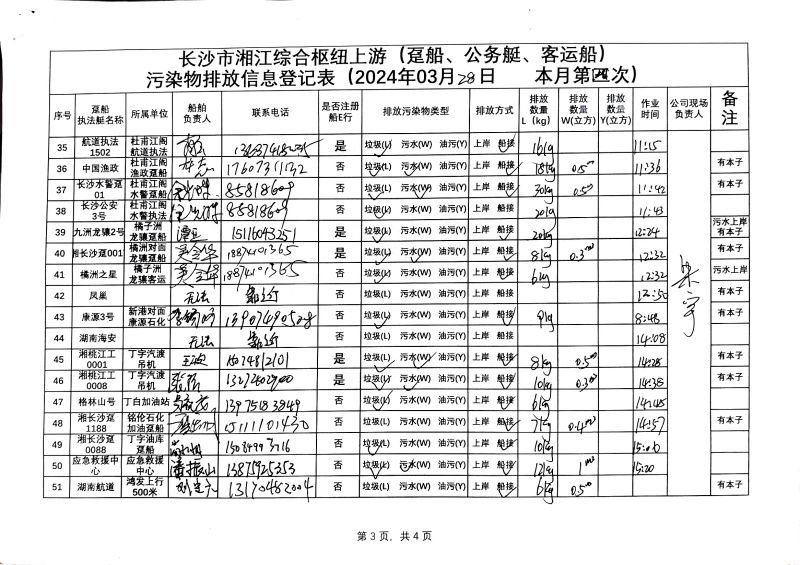 长沙市湘江综合枢纽上游（趸船、公务艇、客运船）
污染物排放信息登记表（2024年03月28日 本月第四次）
序号 趸船执法艇名称 所属单位 船舶负责人 联系电话 是否注册船E行 排放污染物类型 排放方式 排放数量L（kg） 排放数量W(立方) 排放数量Y(立方) 作业时间 公司现场负责人 备注
35 航道执法1502 杜甫江阁航道执法 否 垃圾(L) 污水(W) 油污(Y) 上岸 船接 16kg 11:15
36 中国渔政 杜甫江阁渔政趸船 17607311132 否 垃圾(L) 污水(W) 油污(Y) 上岸 船接 18kg 0.5m³ 11:36 有本子
37 长沙水警趸01 杜甫江阁水警趸船 85818609 否 垃圾(L) 污水(W) 油污(Y) 上岸 船接 30kg 0.5m³ 11:42 有本子
38 长沙公安3号 杜甫江阁水警执法 85818609 否 垃圾(L) 污水(W) 油污(Y) 上岸 船接 20kg 11:43
39 九洲龙骧2号 橘子洲龙骧趸船 15116043251 是 垃圾(L) 污水(W) 油污(Y) 上岸 船接 20kg 12:24 污水上岸有本子
40 湘长沙趸001 橘洲对面龙骧趸船 18874101365 是 垃圾(L) 污水(W) 油污(Y) 上岸 船接 8kg 0.3m³ 12:32 有本子
41 橘洲之星 橘子洲龙骧客运 18874101365 否 垃圾(L) 污水(W) 油污(Y) 上岸 船接 6kg 12:32 污水上岸
42 凤巢 无法 靠近 否 垃圾(L) 污水(W) 油污(Y) 上岸 船接 12:50 有本子
43 康源3号 新港对面康源石化 13907490528 否 垃圾(L) 污水(W) 油污(Y) 上岸 船接 9kg 8:48 有本子
44 湖南海安 无法 靠近 否 垃圾(L) 污水(W) 油污(Y) 上岸 船接 14:08
45 湘桃江工0001 丁字汽渡吊机 是 垃圾(L) 污水(W) 油污(Y) 上岸 船接 8kg 0.5m³ 14:28 有本子
46 湘桃江工0008 丁字汽渡吊机 13272402900 是 垃圾(L) 污水(W) 油污(Y) 上岸 船接 10kg 0.3m³ 14:38 有本子
47 格林山号 丁白加油站 13975183849 否 垃圾(L) 污水(W) 油污(Y) 上岸 船接 6kg 14:48 有本子
48 湘长沙趸1188 铭伦石化加油趸船 15111101430 否 垃圾(L) 污水(W) 油污(Y) 上岸 船接 7kg 0.4m³ 14:57 有本子
49 湘长沙趸0088 丁字油库趸船 15084993716 否 垃圾(L) 污水(W) 油污(Y) 上岸 船接 10kg 15:06
50 应急救援中心 应急救援中心 黄振山 13875925353 否 垃圾(L) 污水(W) 油污(Y) 上岸 船接 12kg 1m³ 15:20
51 湖南航道 鸿发上行500米 13170482004 否 垃圾(L) 污水(W) 油污(Y) 上岸 船接 6kg 0.5m³ 有本子
第 3 页，共 4 页